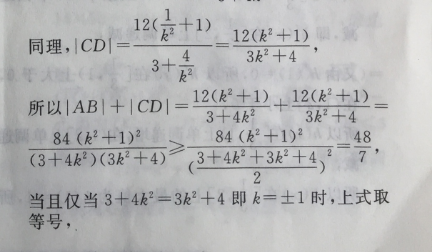 同理,|CD|=\frac{12(\frac{1}{k^2}+1)}{3+\frac{4}{k^2}}=\frac{12(k^2+1)}{3k^2+4},
所以|AB|+|CD|=\frac{12(k^2+1)}{3+4k^2}+\frac{12(k^2+1)}{3k^2+4}=
\frac{84(k^2+1)^2}{(3+4k^2)(3k^2+4)}≥\frac{84(k^2+1)^2}{(\frac{3+4k^2+3k^2+4}{2})^2}=\frac{48}{7},
当且仅当3+4k^2=3k^2+4即k=±1时,上式取
等号,